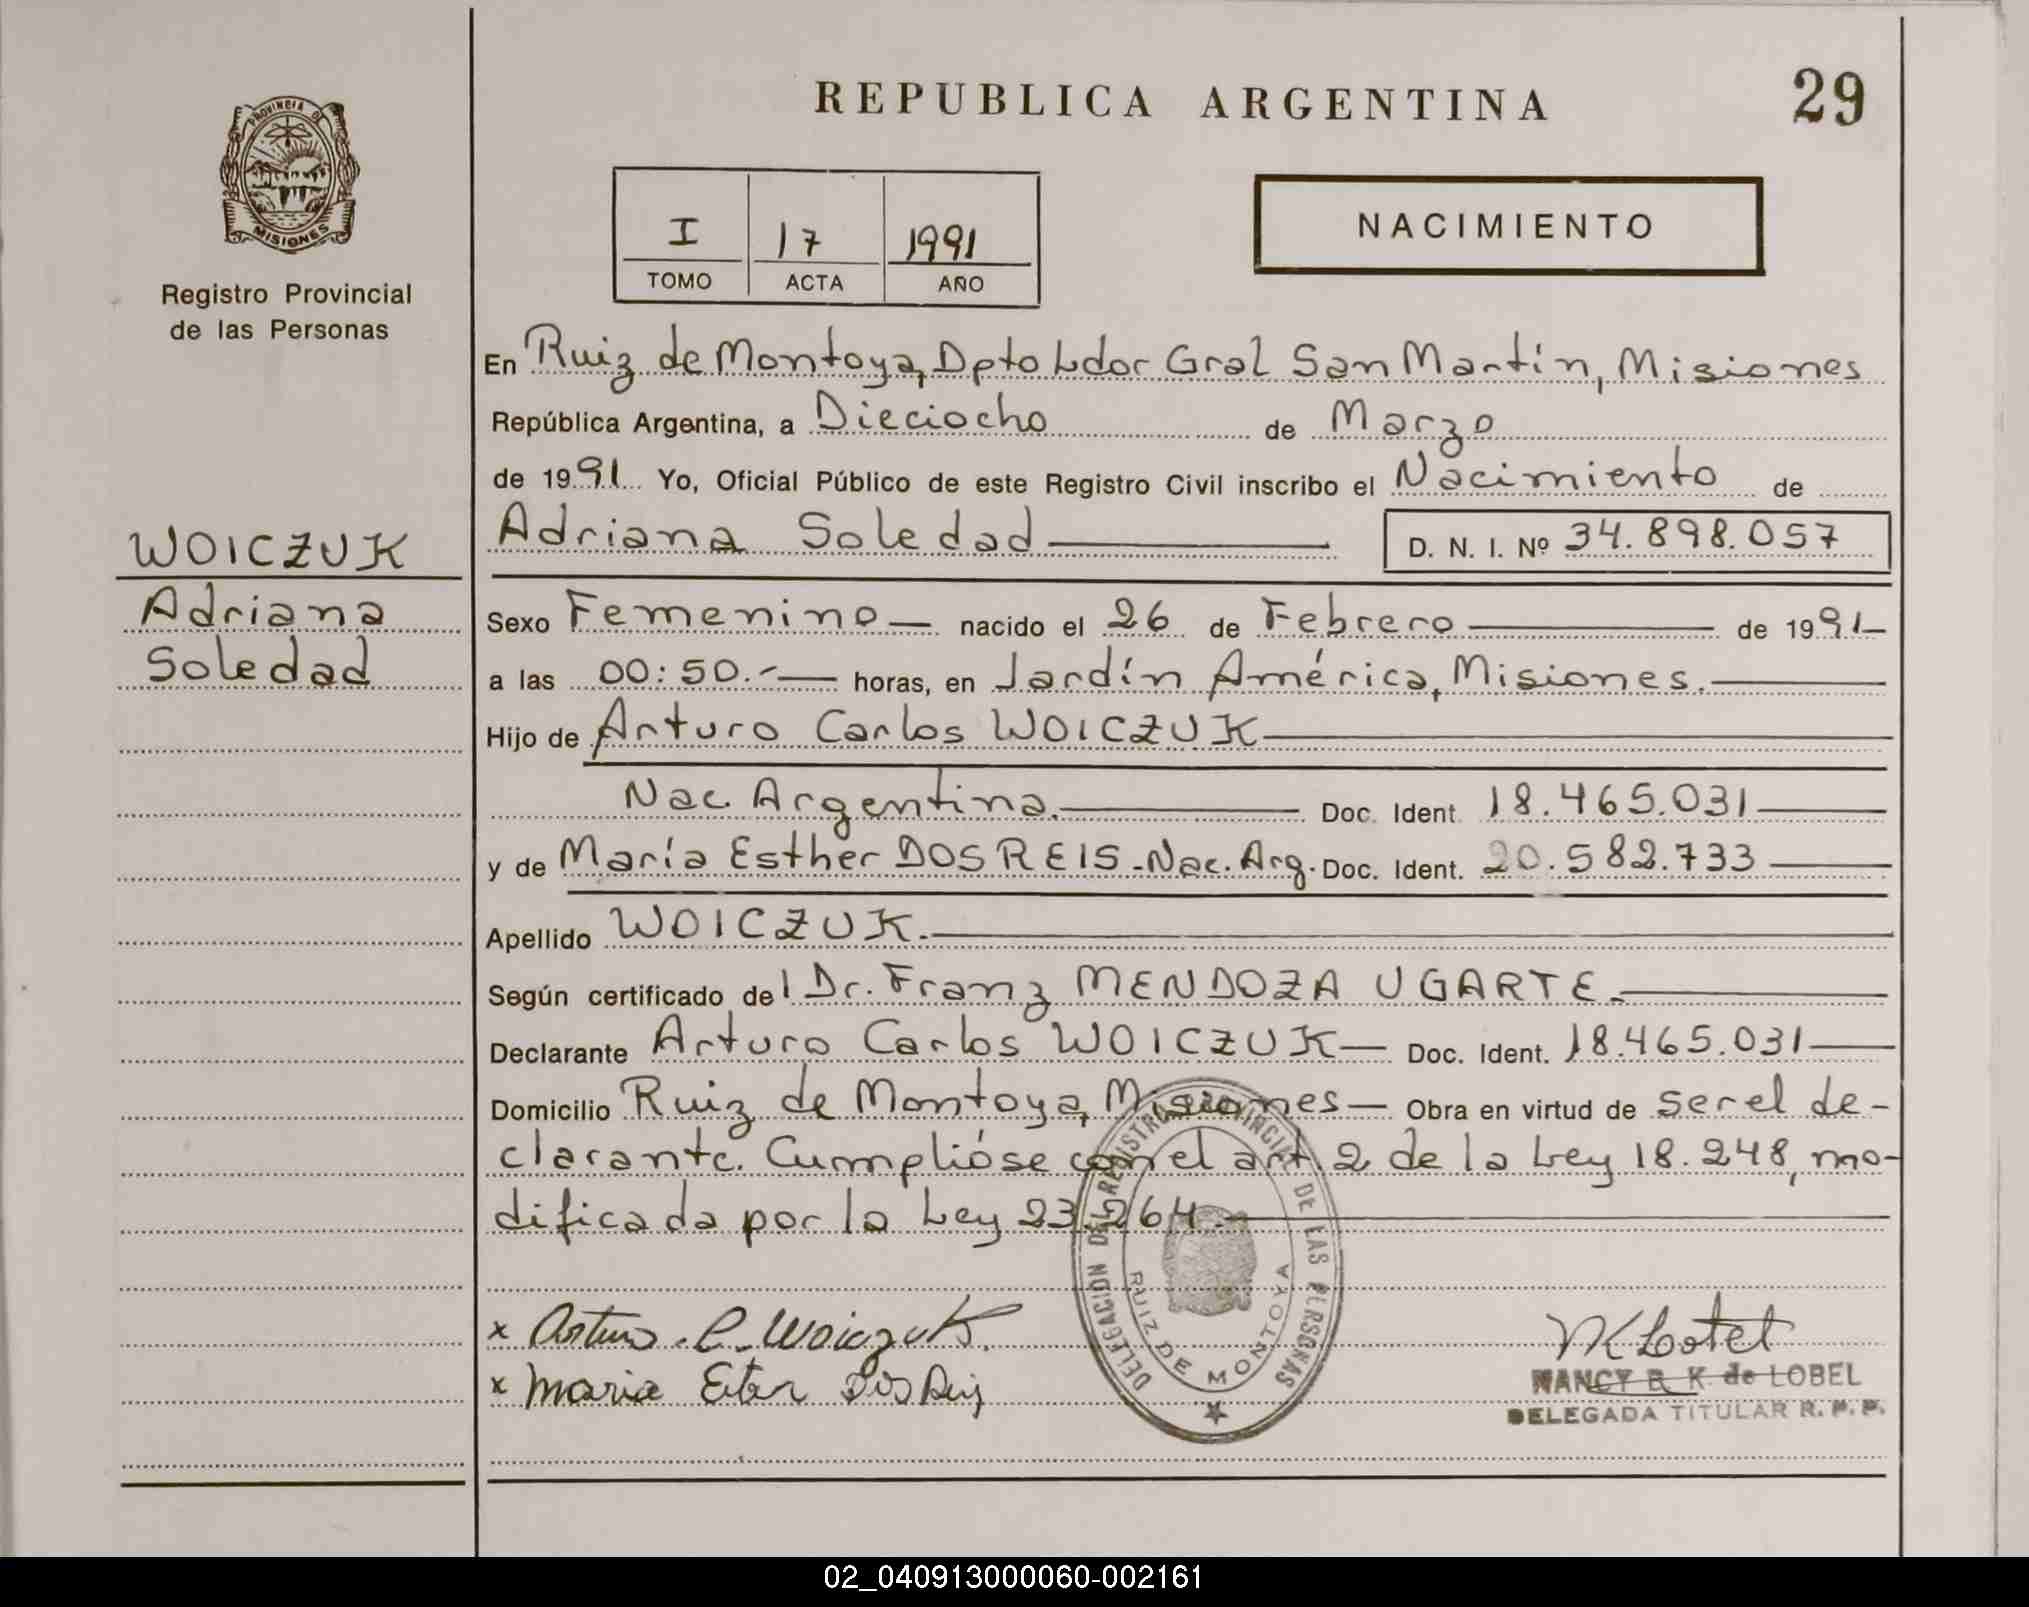 REPUBLICA ARGENTINA
29
PROVINCIA DE
MISIONES
Registro Provincial
de las Personas
I 17 1991
TOMO ACTA AÑO
NACIMIENTO
En Ruiz de Montoya, Dpto Ldor Gral San Martín, Misiones
República Argentina, a Dieciocho de Marzo
de 1991 Yo, Oficial Público de este Registro Civil inscribo el Nacimiento de
Adriana Soledad D. N. I. Nº 34.898.057
WOICZUK
Adriana
Soledad
Sexo Femenino nacido el 26 de Febrero de 1991
a las 00:50.- horas, en Jardín América, Misiones.
Hijo de Arturo Carlos WOICZUK
Nac. Argentina. Doc. Ident. 18.465.031
y de María Esther DOS REIS-Nac. Arg. Doc. Ident. 20.582.733
Apellido WOICZUK.
Según certificado del Dr. Franz MENDOZA UGARTE.
Declarante Arturo Carlos WOICZUK Doc. Ident. 18.465.031
Domicilio Ruiz de Montoya, Misiones Obra en virtud de ser el de-
clarante. Cumplióse con el art. 2 de la Ley 18.248, mo-
dificada por la Ley 23.264.
x Arturo C. Woiczuk
x Maria Ester Dos Reis
DELEGACIÓN DEL REGISTRO PROVINCIAL DE LAS PERSONAS
RUIZ DE MONTOYA
NANCY B. K. de LOBEL
DELEGADA TITULAR R. P. P.
02_040913000060-002161